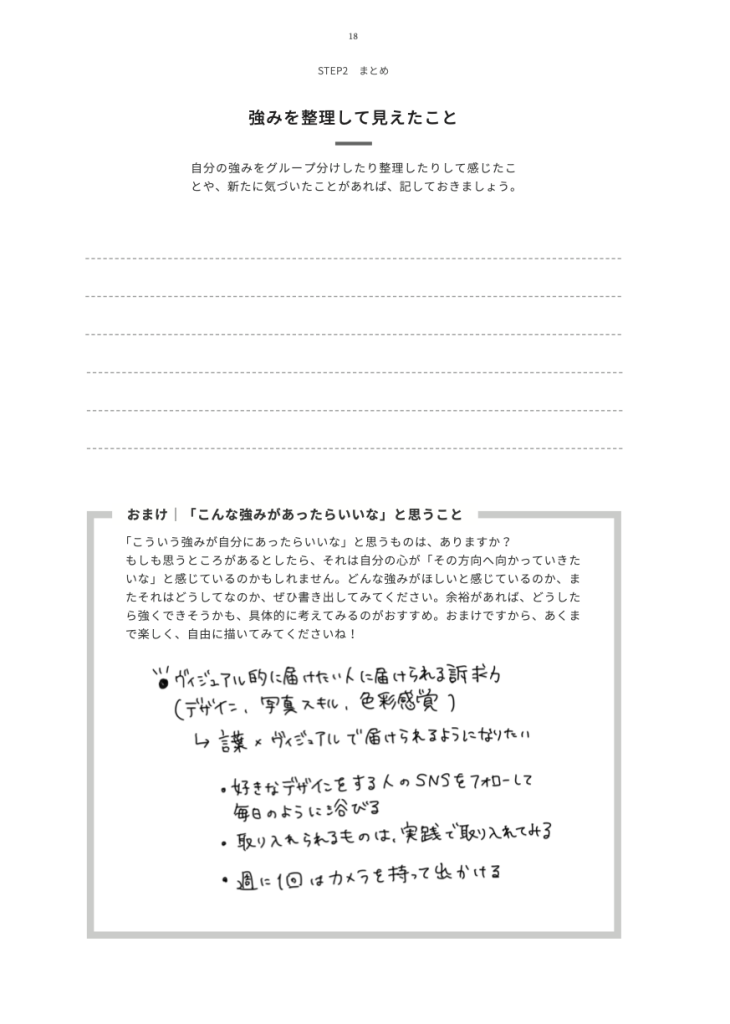 18
STEP2 まとめ
強みを整理して見えたこと
自分の強みをグループ分けしたり整理したりして感じたこ
とや、新たに気づいたことがあれば、記しておきましょう。
おまけ｜「こんな強みがあったらいいな」と思うこと
「こういう強みが自分にあったらいいな」と思うものは、ありますか？
もしも思うところがあるとしたら、それは自分の心が「その方向へ向かっていきた
いな」と感じているのかもしれません。どんな強みがほしいと感じているのか、ま
たそれはどうしてなのか、ぜひ書き出してみてください。余裕があれば、どうした
ら強くできそうかも、具体的に考えてみるのがおすすめ。おまけですから、あくま
で楽しく、自由に描いてみてくださいね！
ヴィジュアル的に届けたい人に届けられる訴求力
(デザイン、写真スキル、色彩感覚)
↳ 言葉×ヴィジュアルで届けられるようになりたい
・好きなデザインをする人のSNSをフォローして
毎日のように浴びる
・取り入れられるものは、実践で取り入れてみる
・週に1回はカメラを持って出かける